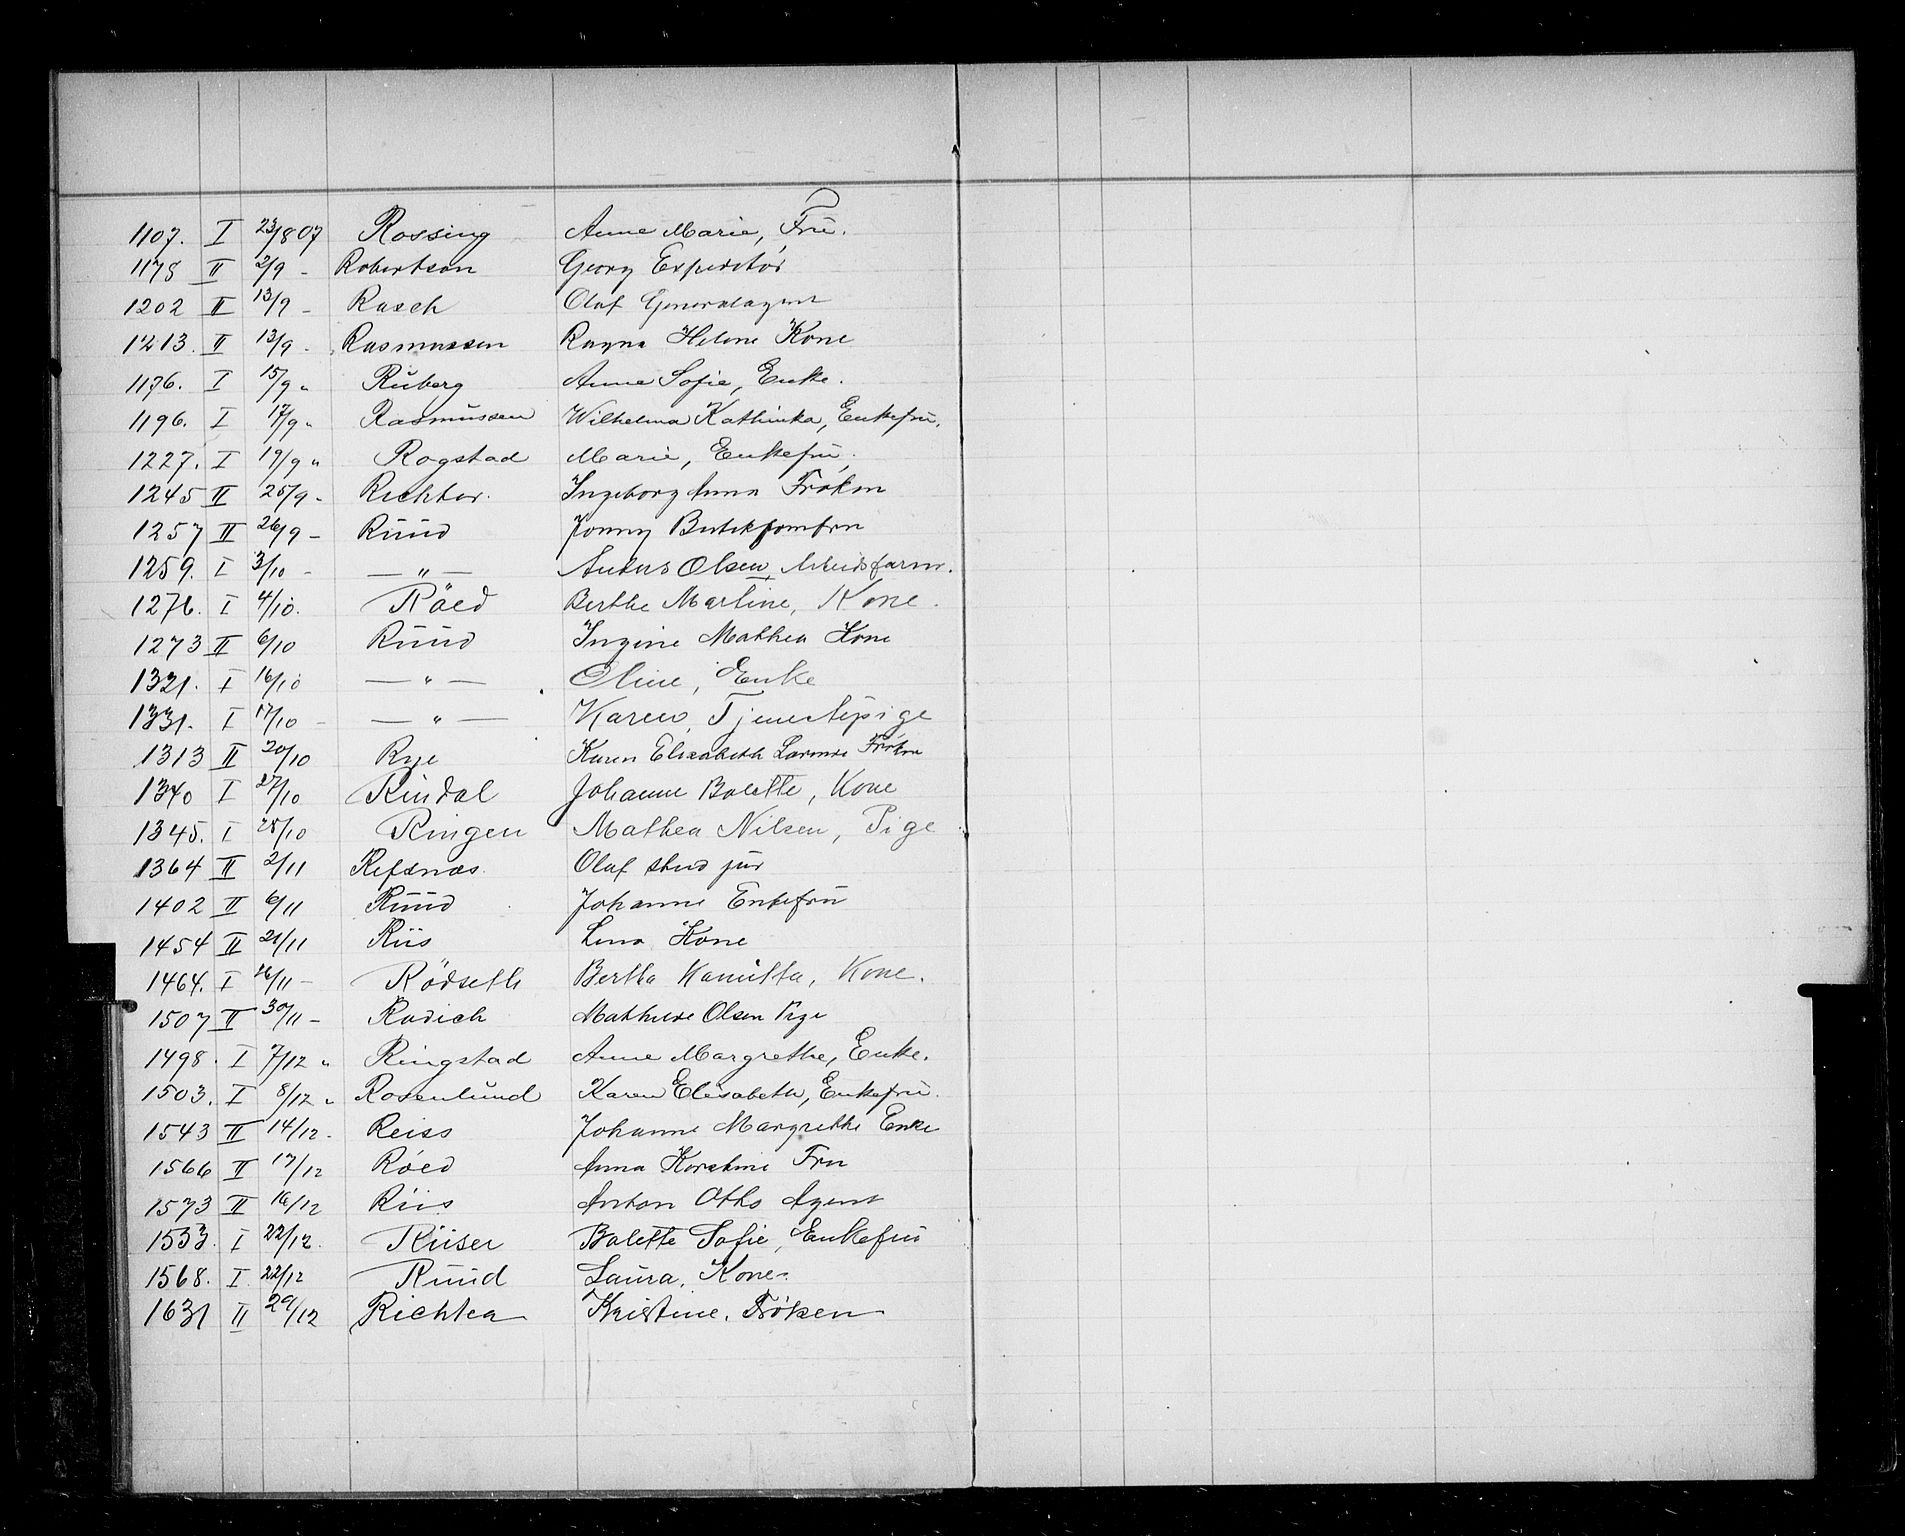 1107. I 23/8 07 Rossing Anne Marie, Frü.
1178 II 2/9 - Robertson Georg Expeditør
1202 II 13/9 - Rasch Olaf Generalagent
1213. II 13/9 - Rasmussen Ragna Helene Kone
1176. I 15/9 " Rüberg Anne Sofie, Enke.
1196. I 17/9 " Rasmüssen Wilhelma Kathinka, Enkefrü.
1227. I 19/9 " Rogstad Marie, Enkefrü.
1245 II 25/9 - Richter. Ingeborg Anna Frøken
1257 II 26/9 - Rüüd Jonny Butikjomfru
1259. I 3/10 - — " — Olsen, Arbeidsform.
1276. I 4/10. Röed Berthe Martine, Kone.
1273 II 6/10 Rüüd Ingine Mathea Kone
1321. I 16/10 — " — Oline, Enke
1331. I 17/10 - — " — Karen, Tjenestepige
1313 II 20/10 Rye Karen Elisabeth Frøken
1340 I 27/10 Rindal Johanne Bolette, Kone
1345. I 28/10 Ringen Mathea Nilsen, Pige
1364 II 2/11 Refsnæs. Olaf stud jur
1402 II 6/11 Rüüd Johanne Enkefrü
1454 II 21/11 Riis Lina Kone
1464. I 26/11 - Rödseth Bertha Kamitta, Kone.
1507 II 30/11 - Radich Mathilde Olsen Pige
1498. I 7/12 " Ringstad Anne Margrethe, Enke.
1503. I 8/12 " Rosenlünd Karen Elisabeth, Enkefrü.
1543 II 14/12 - Reiss Johanne Margrethe Enke
1566 II 17/12 Röed Anna Kirstine Fru
1573 II 16/12 Riis Anton Otho Agent
1553. I 22/12. Riiser Bolette Sofie, Enkefrü
1568. I 22/12 Rüüd Laüra, Kone.
1631 II 29/12 Richter Kristine. Frøken